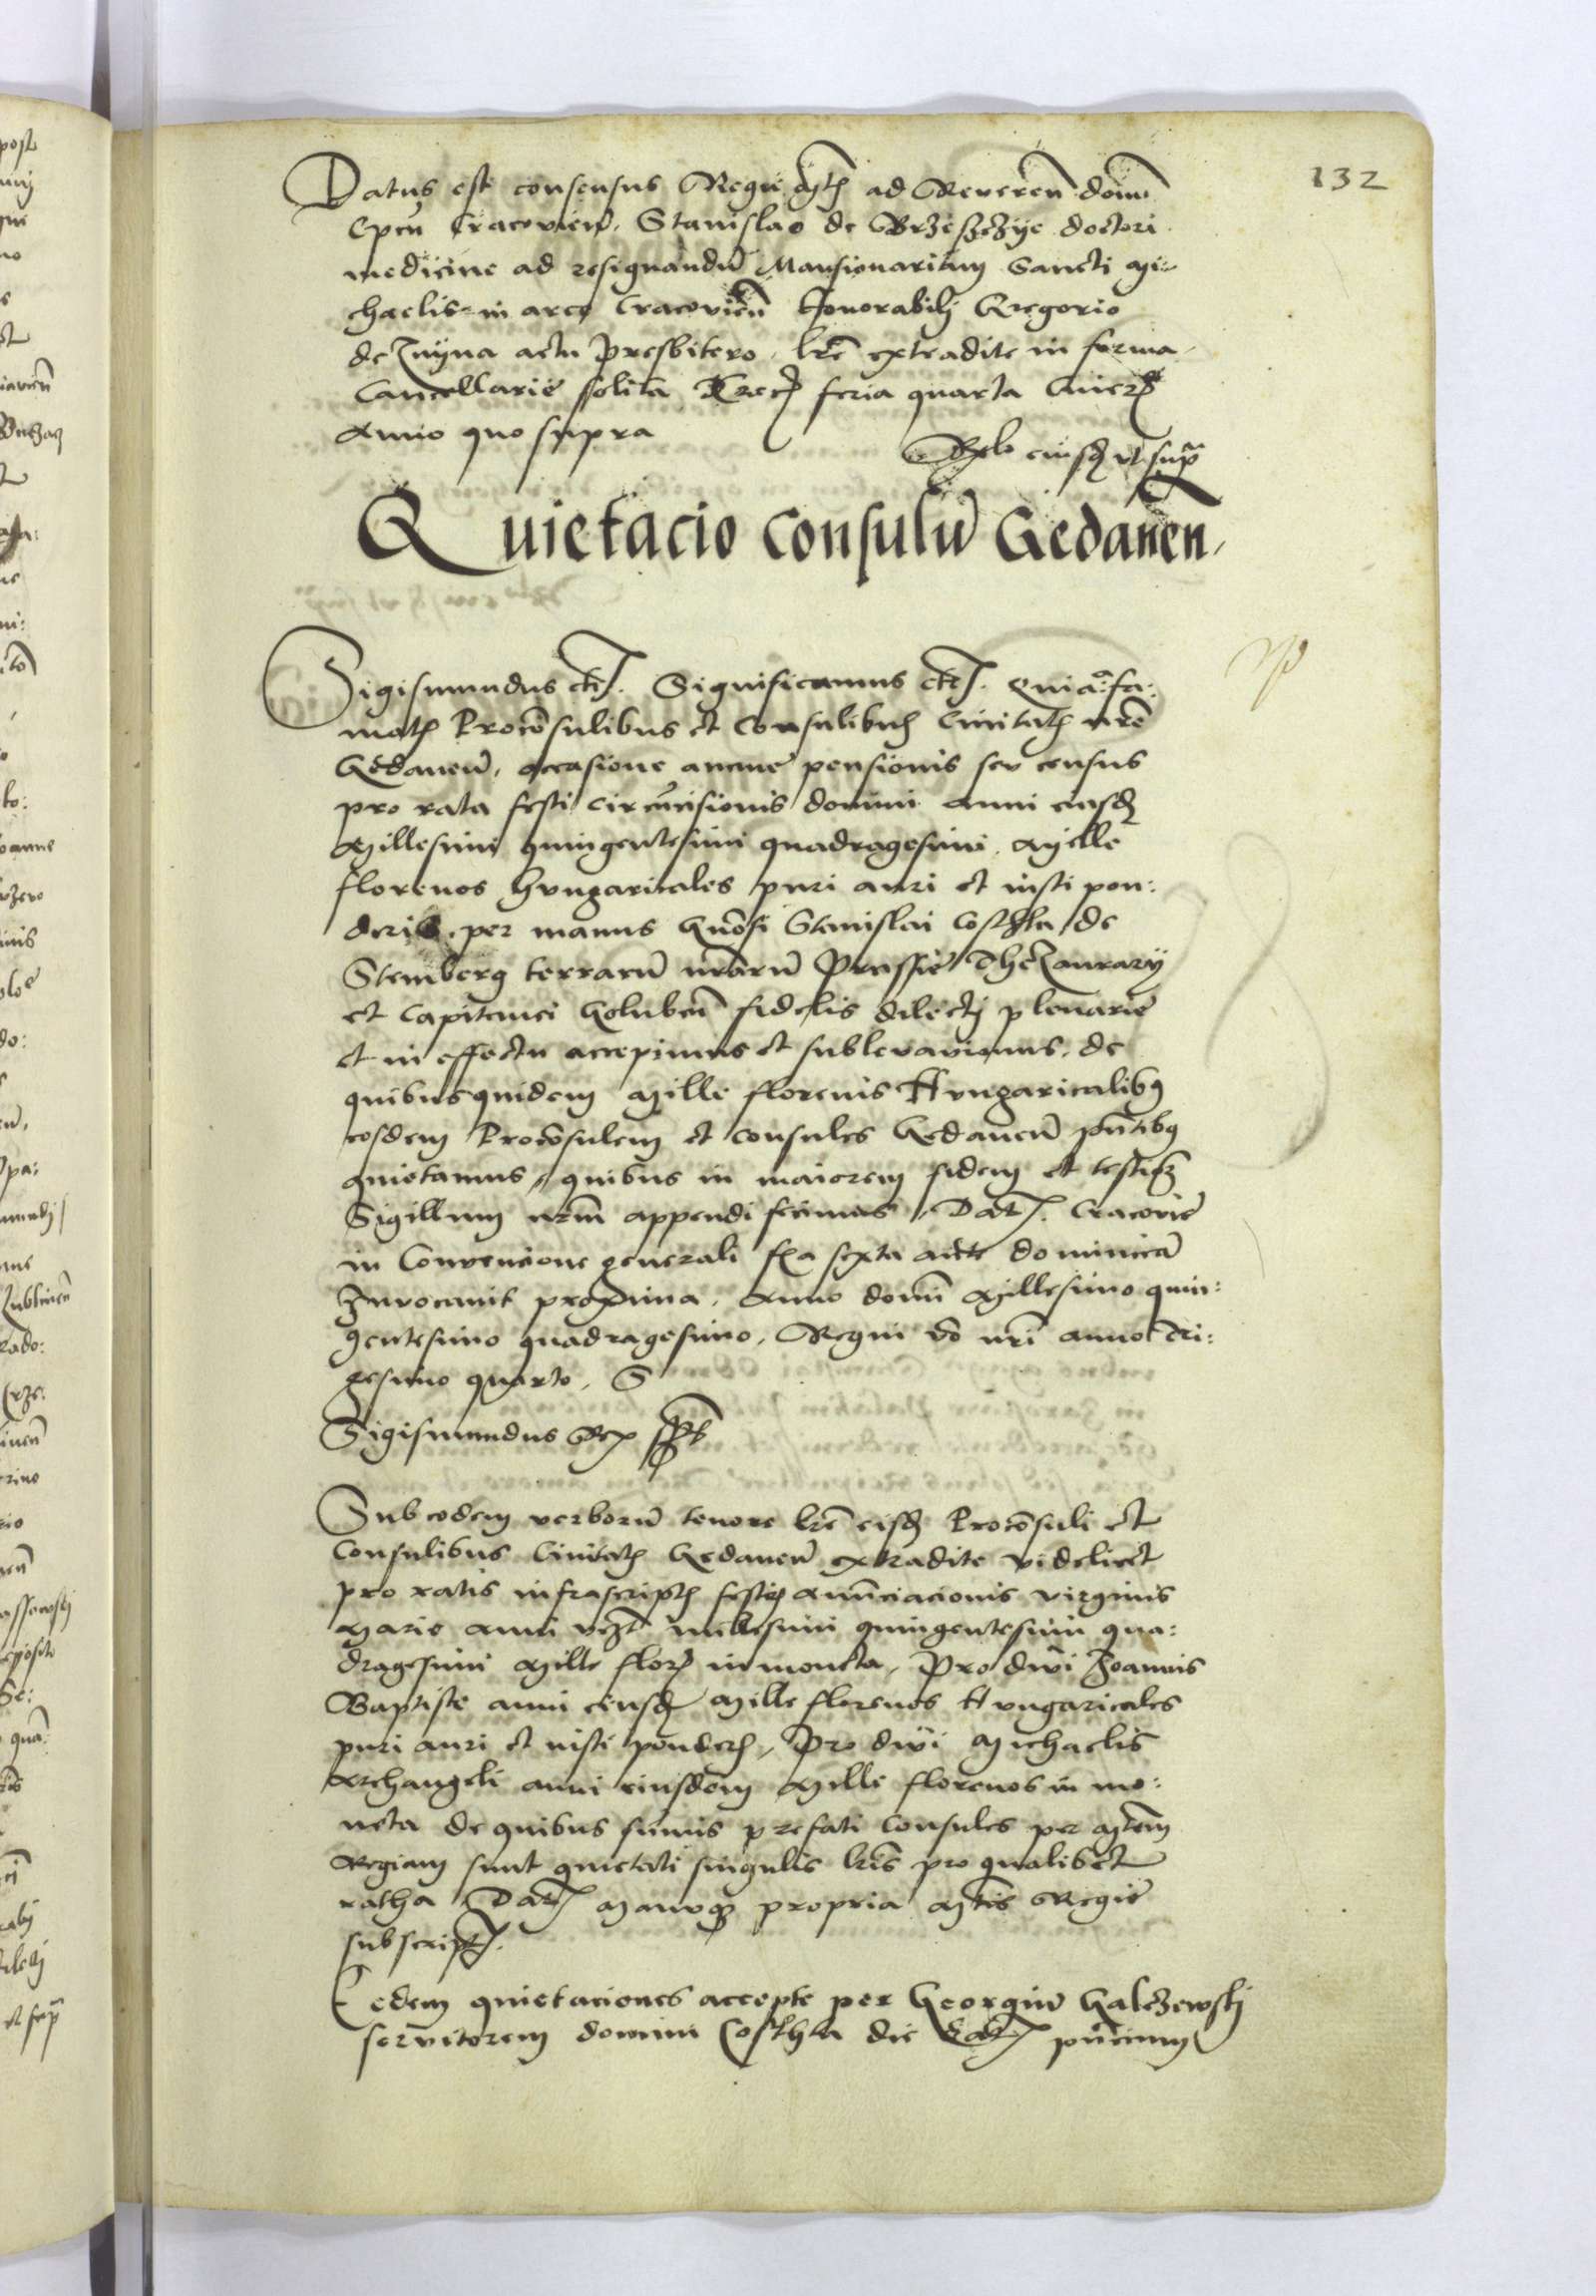 132
Datus est consensus Regie M̃tis ad Reueren̄ dom̄
Ep̄cu Cracovien̄. Stanislao de Brzesczÿe doctori
medicine ad resignandū Mansionariam Sancti Mi-
chaelis in arce Cracovien̄ Honorabilj Gregorio
de Znÿna actu Presbitero. Lr̄e extradite in forma
Cancellarie solita feria quarta Cinerū
Anno quo supra
Relō eiusdē vt supª
Quietacio Consulū Gedanen̄
Sigismundus etc. Significamus etc. Quia a fa:
matis Procōsulibus et Consulibus Ciuitatis nr̄e
Gedanen̄, occasione annue pensionis seu census
pro rata festi circūcisionis domini anni eiusdē
Millesimi quingentesimi quadragesimi. Mille
florenos hungaricales puri auri et iusti pon:
deris. per manus Gn̄osi Stanislai Costhka de
Stemberg terrarū nr̄arū Prussie Thezaurarÿ
et Capitanei Goluben̄ fidelis dilectj plenarie
et in effectu accepimus et sublevavimus. de
quibus quidem Mille florenis Hungaricalibus
eosdem Procōsulem et consules Gedanen̄ pn̄tibus
quietamus, quibus in maiorem fidem et testim̄
Sigillum nr̄m appendi fecimus. Dat. Cracovie
in Conventione generali fr̄a sexta ante dominicā
Invocavit proxima. Anno domī Millesimo quin:
gentesimo quadragesimo. Regni vō nr̄i anno tri:
gesimo quarto. S
Sigismundus Rex sst
Sub eodem verborū tenore lr̄e eisdē Procōsuli et
Consulibus Ciuitatis Gedanen̄ extradite videlicet
pro ratis infrascriptis festi Anūnciacionis virginis
Marie anni vizt millesimi quingentesimi qua:
dragesimi Mille flor̄ in moneta, Pro diui Joannis
Baptiste anni eiusdē Mille florenos Hungaricales
puri auri et iusti ponderis, Pro diui Michaelis
Archangeli anni eiusdem Mille florenos in mo:
neta de quibus summis prefati Consules per Mtem̄
Regiam sunt quietati singulis lr̄is pro qualibet
ratha Dat. Manuq3 propria Mtis Regie
subscript.
Eedem quietaciones accepte per Georgiū Galczewskj
servitorem domini Costhka die Dat. pn̄cium